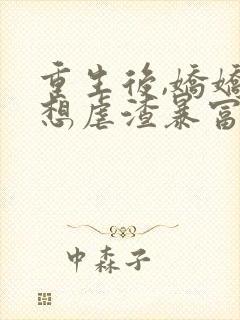 重生後,嬌嬌
想虐渣暴富
中森子